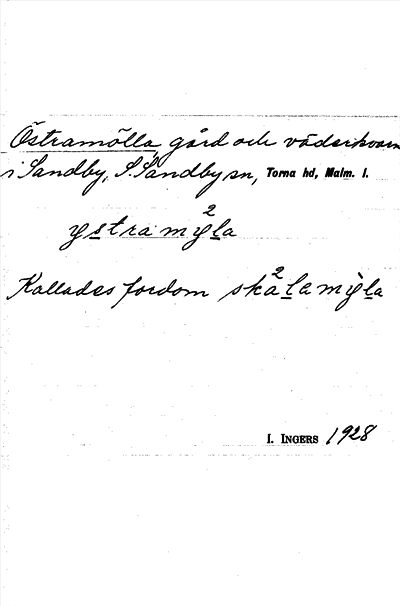 Östramölla, gård och väderkvarn
i Sandby, S. Sandby sn, Torna hd, Malm. l.
ystra my²la
Kallades fordom ska²lemỳla
I. INGERS 1928